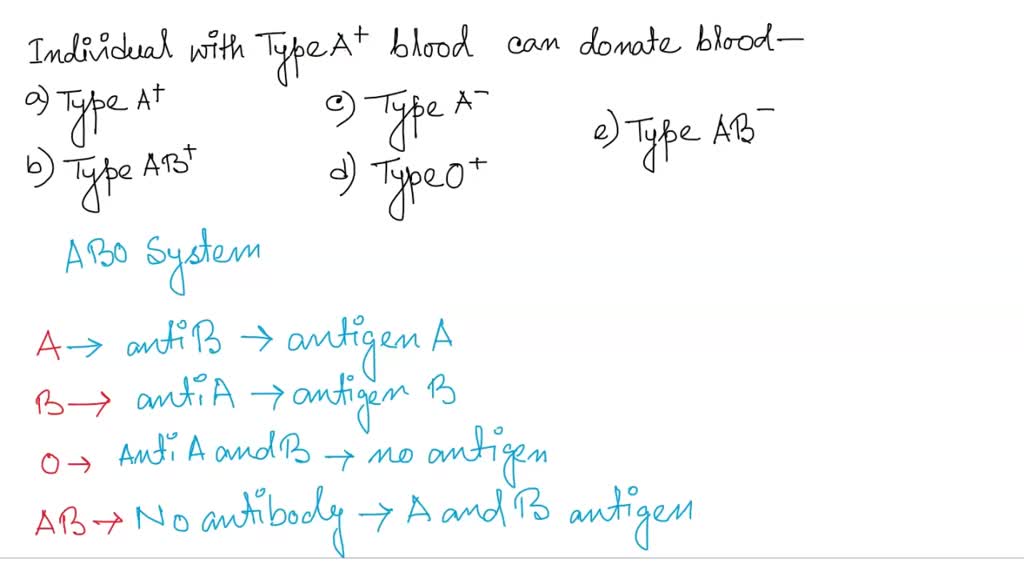 Individual with Type A⁺ blood can donate blood—
a) Type A⁺
b) Type AB⁺
c) Type A⁻
d) Type O⁺
e) Type AB⁻
ABO System
A → antiB → antigen A
B → antiA → antigen B
O → Anti A and B → no antigen
AB → No antibody → A and B antigen